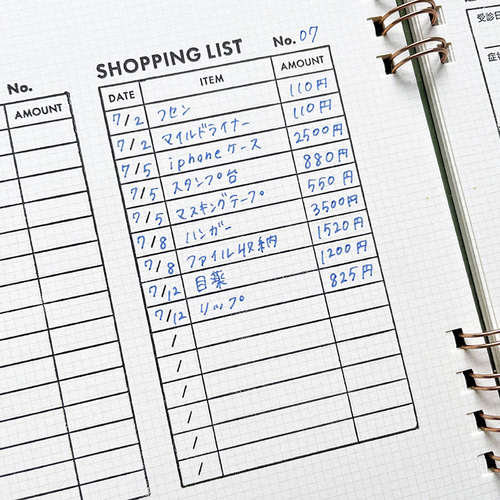 No.
AMOUNT
SHOPPING LIST No. 07
DATE ITEM AMOUNT
7/2 フセン 110円
7/2 マイルドライナー 110円
7/5 iphoneケース 2500円
7/5 スタンプ台 880円
7/5 マスキングテープ 550円
7/8 ハンガー 3500円
7/8 ファイル収納 1520円
7/12 目薬 1200円
7/12 リップ 825円
/
/
/
/
/
/
受診日
症状